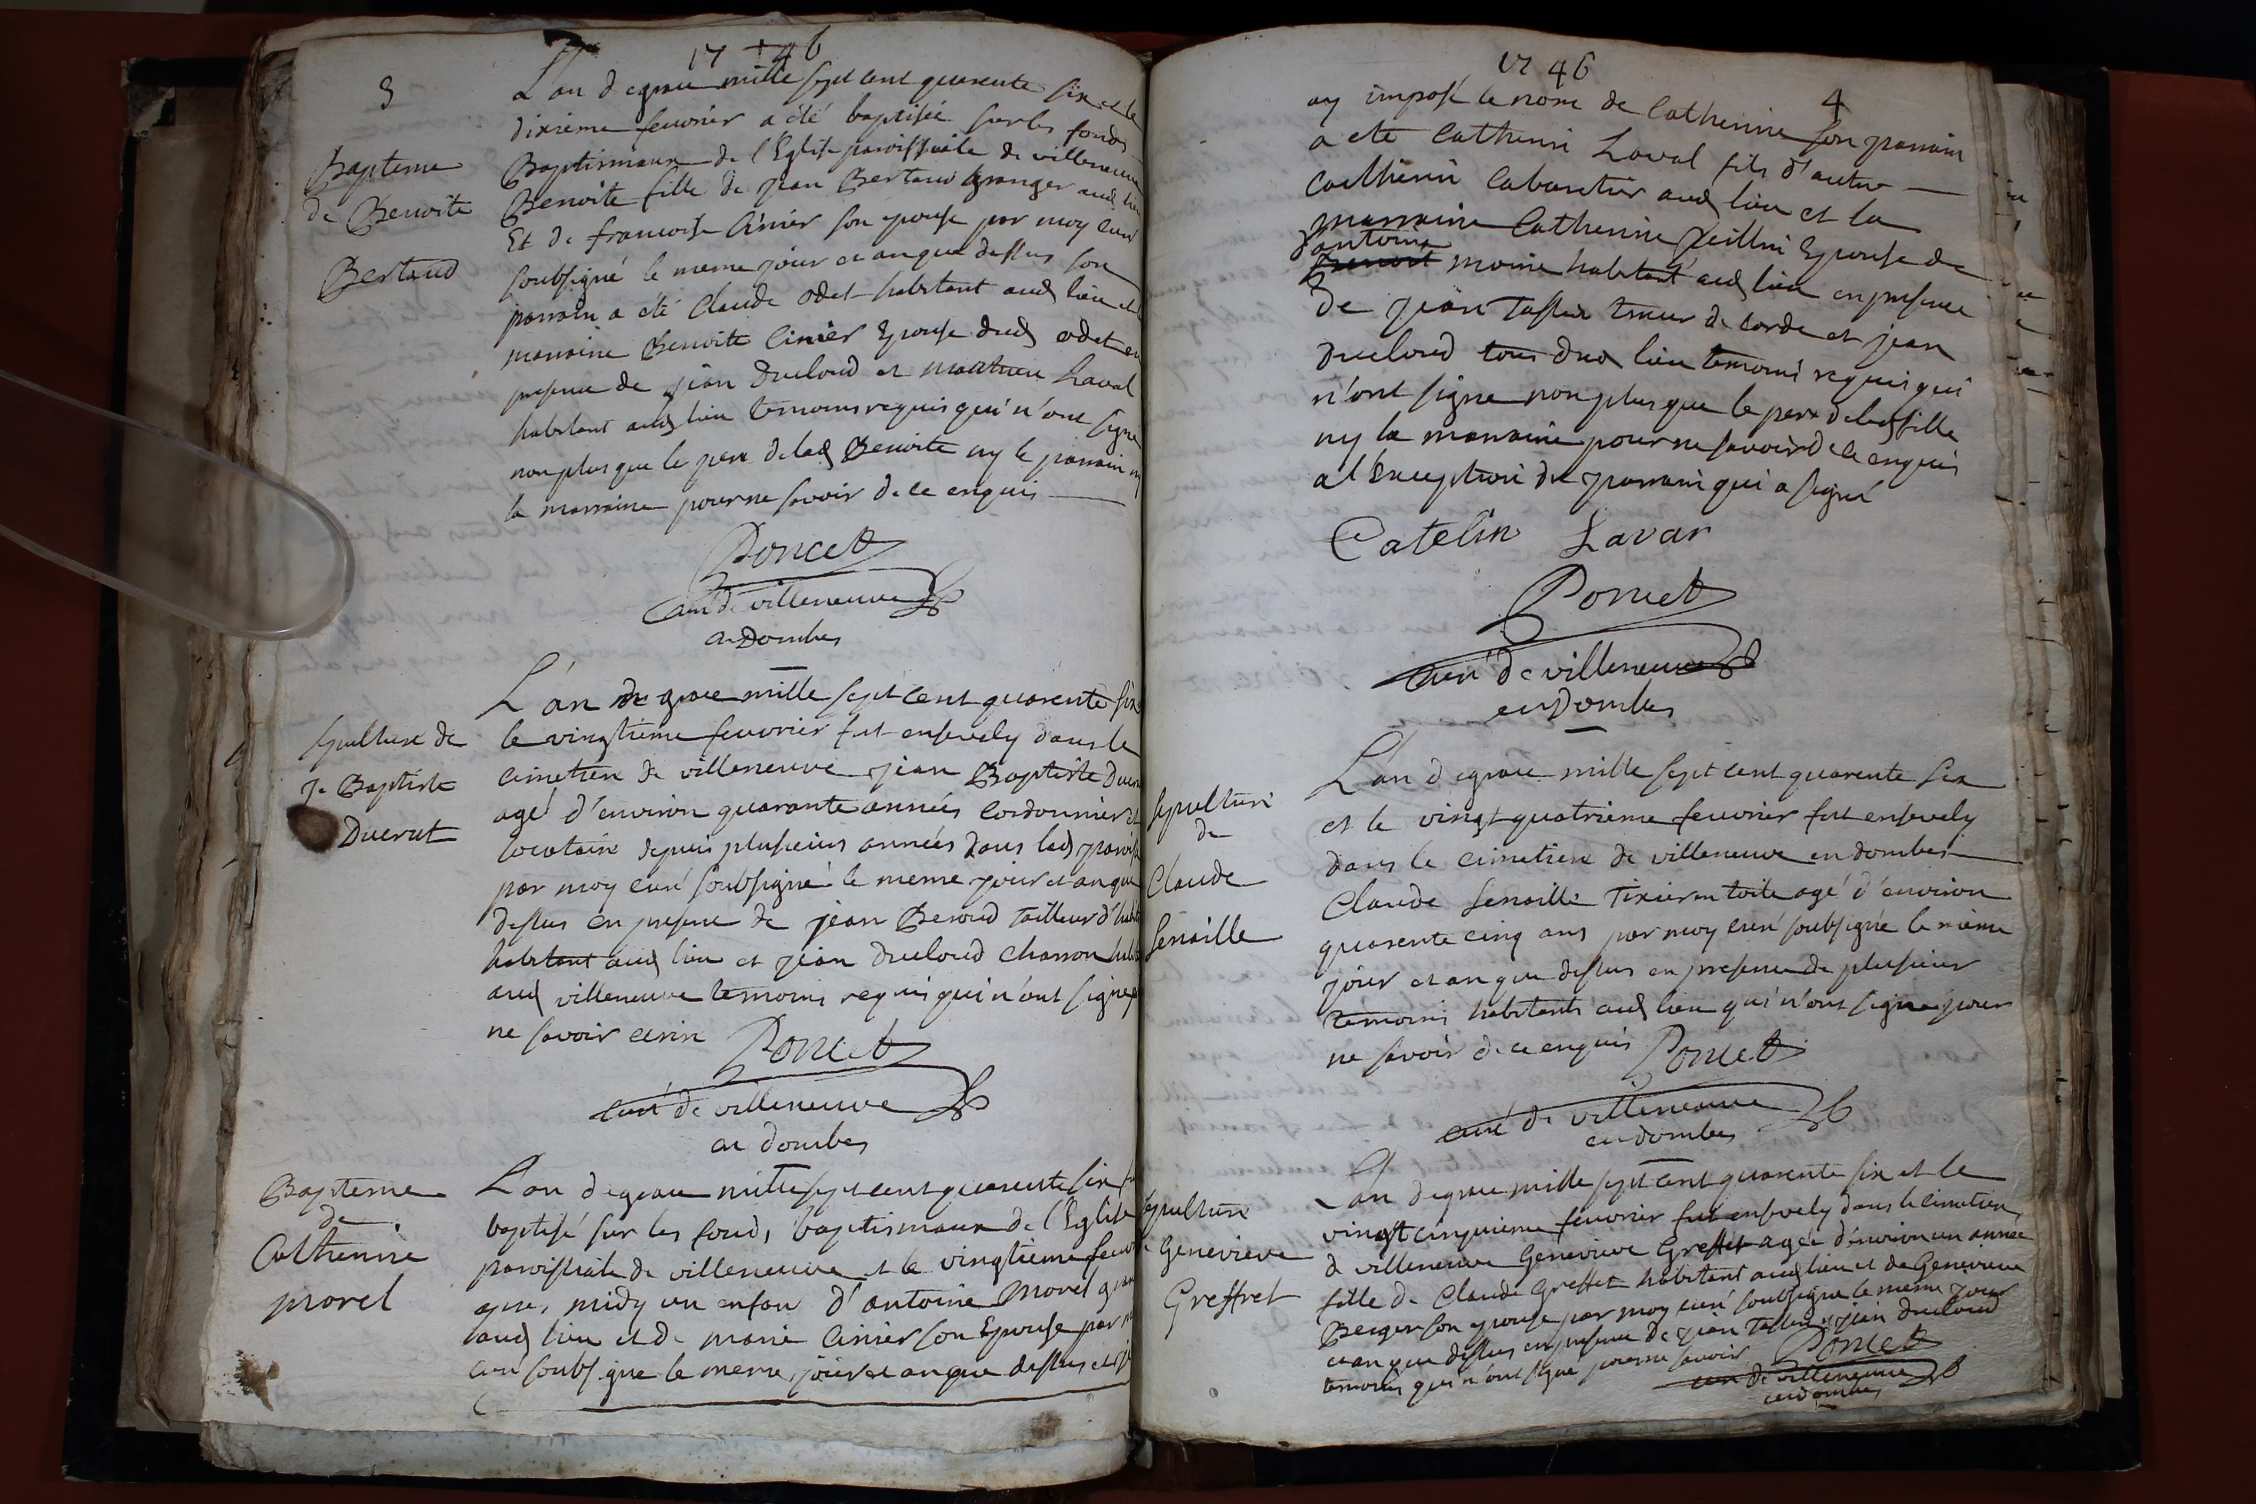 1746
3
L'an de grace mille sept cent quarente six et le
dixieme feuvrier a été baptisée sur les fonds
Baptismaux de l'Eglise paroissiale de villeneuve
Benoite fille de jean Bertaud granger aud lieu
Et de francoise Cinier son epouse par moy curé
soubsigné le meme jour et an que dessus son
parrain a été Claude odet habitant aud lieu et
marraine Benoite Cinier Epouse dud odet en
presence de jean Ducloud et mathieu Laval
habitant aud lieu temoins requis qui n'ont signé
non plus que le pere de lad Benoite ny le parrain ny
la marraine pour ne savoir de ce enquis
Bapteme
de Benoite
Bertaud
Poncet
curé de villeneuve
en Dombes
L'an de grace mille sept cent quarente six
le vingtieme feuvrier fut ensevely dans le
cimetiere de villeneuve jean Baptiste Ducrut
agé d'environ quarante années Cordonnier et
locataire depuis plusieurs années dans lad paroisse
par moy curé soubsigné le meme jour et an que
dessus en presence de jean Beroud Tailleur d'
habitant aud lieu et jean Ducloud charron
aud villeneuve temoins requis qui n'ont signé
ne savoir ecrire
Sepulture de
J. Baptiste
Ducrut
Poncet
curé de villeneuve
en dombes
L'an de grace mille sept cent quarente six
baptisé sur les fonds baptismaux de l'Eglise
paroissiale de villeneuve et le vingtieme
apres midy un enfan d'antoine Morel
aud lieu et de marie Cinier son Epouse par
curé soubsigné le meme jour et an que dessus et
Bapteme
de
Catherine
morel
1746
4
ay imposé le nom de Catherine son parrain
a eté Catherin Laval fils d'autre
Catherin Cabaretier aud lieu et la
marraine Catherine Epouse de
antoine
Benoit moine habitant aud lieu en presence
de jean Tassed de corde et jean
Ducloud tous dud lieu temoins requis qui
n'ont signé non plus que le pere de lad fille
ny la marraine pour ne savoir de ce enquis
a l'Exception du parrain qui a signé
Catelin Lavar
Poncet
Curé de villeneuve
en Dombes
L'an de grace mille sept cent quarente six
et le vingt quatrieme feuvrier fut ensevely
dans le cimetiere de villeneuve en dombes
Claude Senaille Tixier en toile agé d'environ
quarente cinq ans par moy curé soubsigné le meme
jour et an que dessus en presence de plusieur
temoins habitants aud lieu qui n'ont signé pour
ne savoir de ce enquis
Sepulture
de
Claude
Senaille
Poncet
curé de villeneuve
en dombes
L'an de grace mille sept cent quarente six et le
vingt cinquieme feuvrier fut ensevely dans le cimetiere
de villeneuve Genevieve Greffet agée d'environ un année
fille de Claude Greffet habitant aud lieu et de Genevieve
Berger son epouse par moy curé soubsigné le meme jour
et an que dessus en presence de jean Tassed et jean Ducloud
temoins qui n'ont signé pour ne savoir
Sepulture
Genevieve
Greffet
Poncet
curé de villeneuve
en dombes